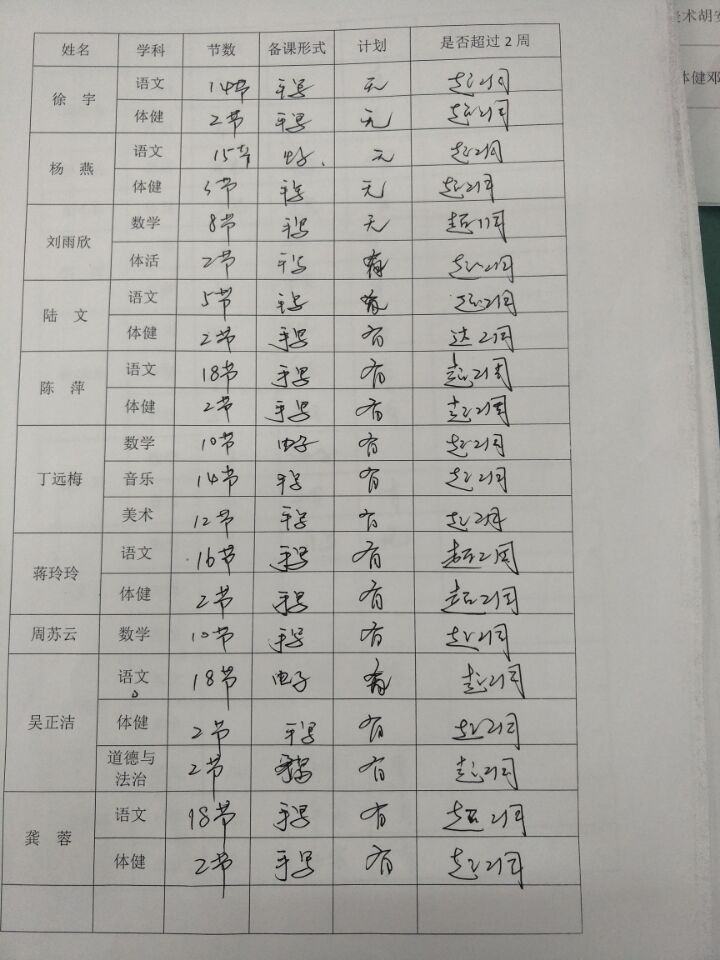 姓名 学科 节数 备课形式 计划 是否超过2周
徐 宇 语文 14节 手写 无 超2周
体健 2节 手写 无 超2周
杨 燕 语文 15节 电子 无 超2周
体健 5节 手写 无 超2周
刘雨欣 数学 8节 手写 无 超2周
体活 2节 手写 有 超2周
陆 文 语文 5节 手写 有 超2周
体健 2节 手写 有 达2周
陈 萍 语文 18节 手写 有 超2周
体健 2节 手写 有 超2周
丁远梅 数学 10节 电子 有 超2周
音乐 14节 手写 有 超2周
美术 12节 手写 有 超2周
蒋玲玲 语文 16节 手写 有 超2周
体健 2节 手写 有 超2周
周苏云 数学 10节 手写 有 超2周
吴正洁 语文 18节 电子 有 超2周
体健 2节 手写 有 超2周
道德与
法治 2节 手写 有 超2周
龚 蓉 语文 18节 手写 有 超2周
体健 2节 手写 有 超2周
术胡安
体健邓